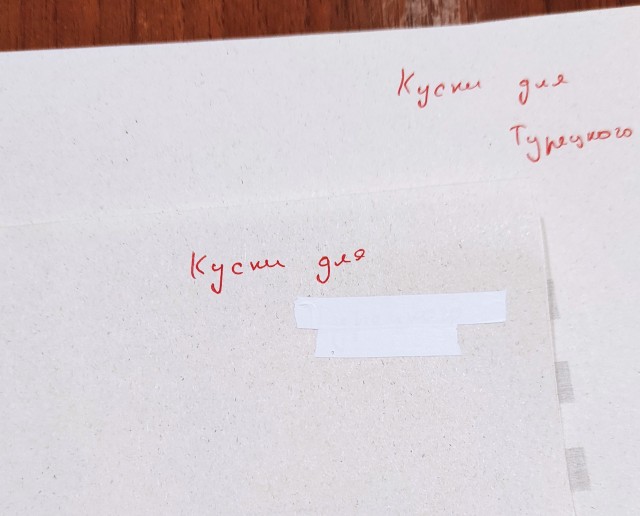 Куски для
Турецкого
Куски для